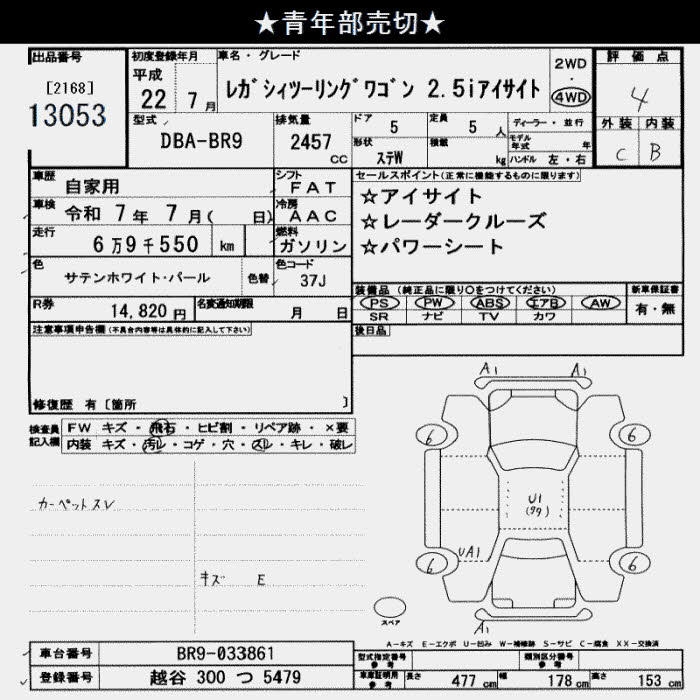 ★青年部売切★
出品番号
[2168]
13053
初度登録年月
平成
22 7月
車名・グレード
レガシィツーリングワゴン 2.5iアイサイト
2WD
・
4WD
評価点
4
外装 内装
C B
型式
DBA-BR9
排気量
2457
CC
ドア
5
定員
5 人
形状
ステW
積載
kg
ディーラー・並行
モデル年式 年
ハンドル 左・右
車歴
自家用
シフト
FAT
車検
令和 7年 7月( 日)
冷房
AAC
走行
6万9千550 km
燃料
ガソリン
色
サテンホワイト・パール
色替
色コード
37J
R券
14,820 円
名変通知期限
月 日
セールスポイント(正常に機能するものに限ります)
☆アイサイト
☆レーダークルーズ
☆パワーシート
装備品 (純正品に限り○をつけてください)
新車保証書
PS PW ABS エアB AW
SR ナビ TV カワ
有・無
後日品
注意事項申告欄(不具合内容等は具体的に記入して下さい)
修復歴 有 [箇所 ]
検査員
記入欄
FW キズ・飛石・ヒビ割・リペア跡・×要
内装 キズ・汚レ・コゲ・穴・スレ・キレ・破レ
カーペットスレ
キズ E
A1 A1
6 6
U1
UA1
6 6
A1
スペア
A-キズ E-エクボ U-凹み W-補修跡 S-サビ C-腐食 XX-交換済
車台番号
BR9-033861
登録番号
越谷 300 つ 5479
型式指定番号
参考
類別区分番号
参考
車庫証明用
参考
長さ 477 cm
幅 178 cm
高さ 153 cm